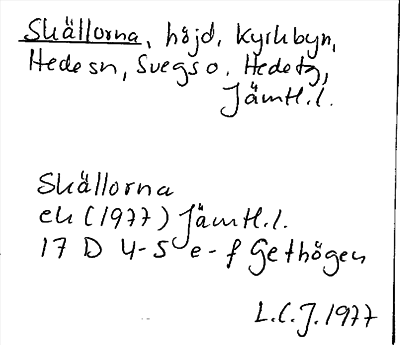 Skällorna, höjd, Kyrkbyn,
Hede sn, Svegs o. Hede tg,
Jämtl. l.
Skällorna
ek (1977) Jämtl. l.
17 D 4-5 e-f Gethögen
L.C.J. 1977